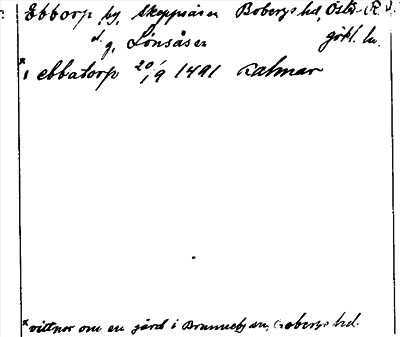 Ebbtorp by, Skeppsåsen Bobergs hd, Östr.
d. g. Lönsåsen götl. ln.
* i ebbatorp 20/9 1491 Kalmar
* vittnor om en gård i Brunneby sn, Bobergs hd.